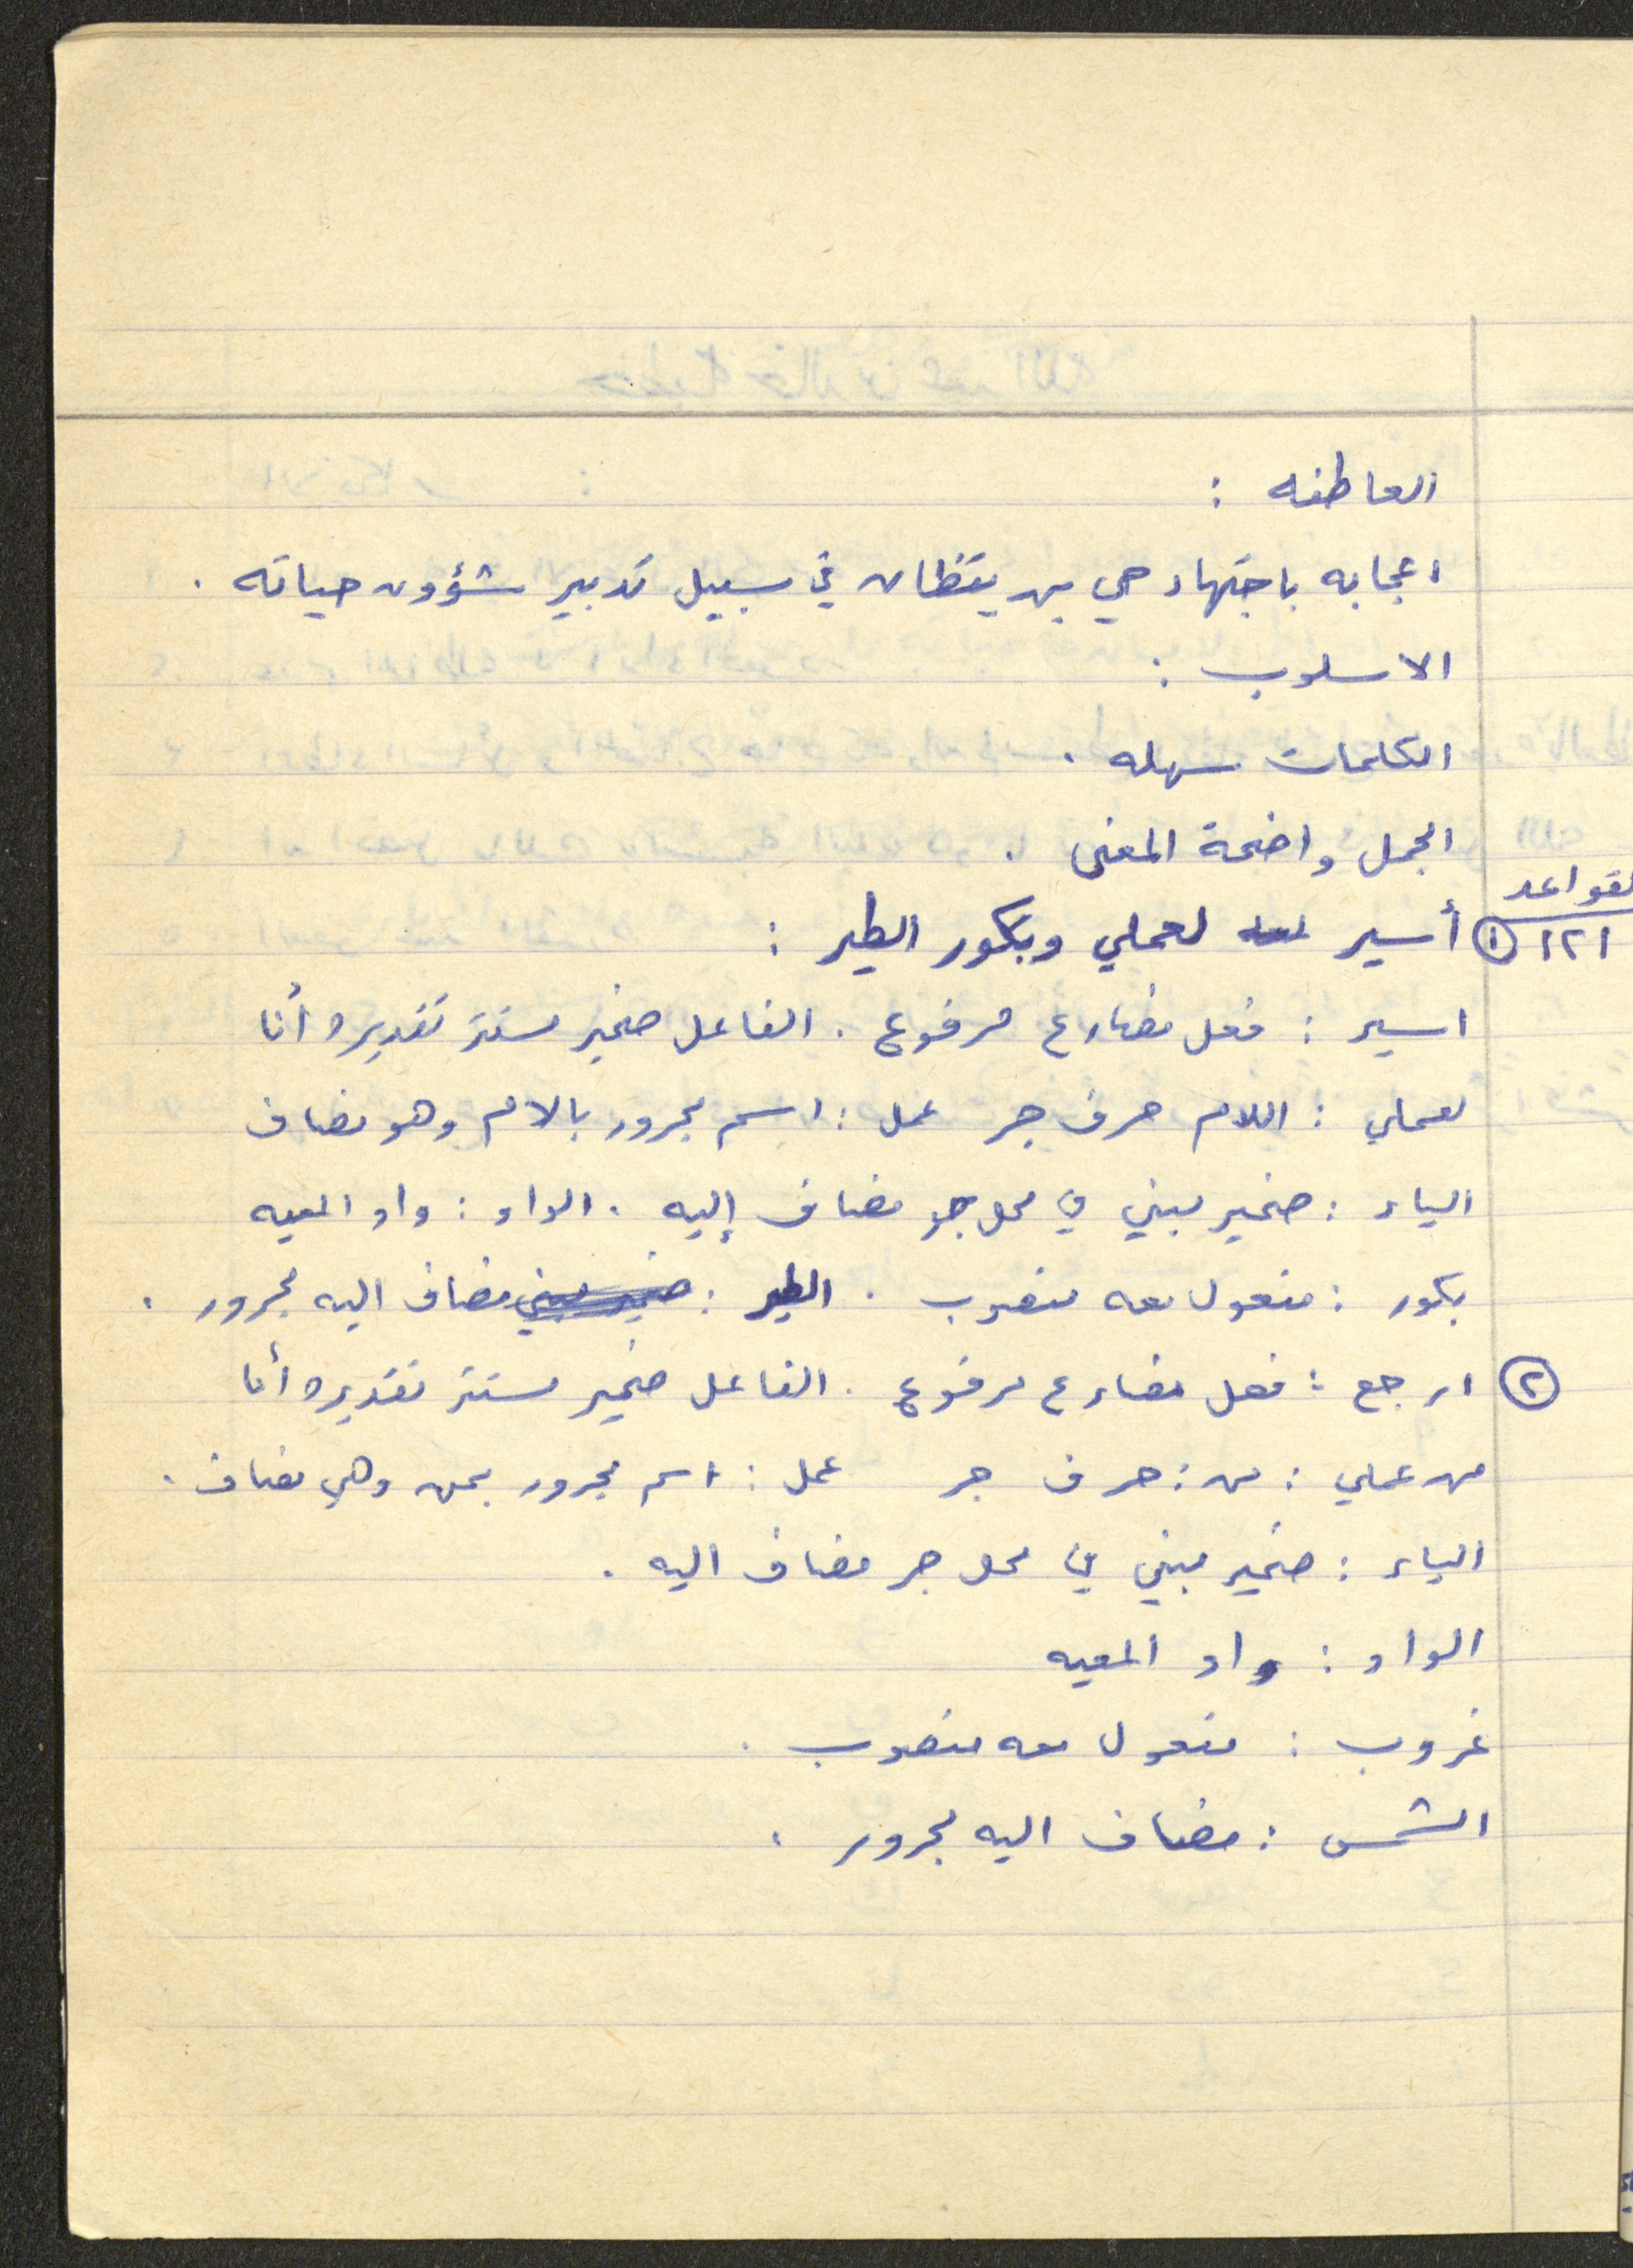 العاطفه :
اعجابه باجتهاد حي بن يقظان في سبيل تدبير شؤون حياته .
الاسلوب :
الكلمات سهله .
الجمل واضحة المعنى .
القواعد
١٢١ ① أسير لعملي وبكور الطير :
اسير : فعل مضارع مرفوع . الفاعل ضمير مستتر تقديره أنا
لعملي : اللام حرف جر عمل : اسم مجرور بالام وهو مضاف
الياء : ضمير مبني في محل جر مضاف إليه . الواو : واو المعيه
بكور : مفعول معه منصوب . الطير : ضمير مبني مضاف اليه مجرور .
② ارجع : فعل مضارع مرفوع . الفاعل ضمير مستتر تقديره أنا
من عملي : من : حرف جر عمل : اسم مجرور بمن وهي مضاف .
الياء : ضمير مبني في محل جر مضاف اليه .
الواو : واو المعيه
غروب : مفعول معه منصوب .
الشمس : مضاف اليه مجرور .